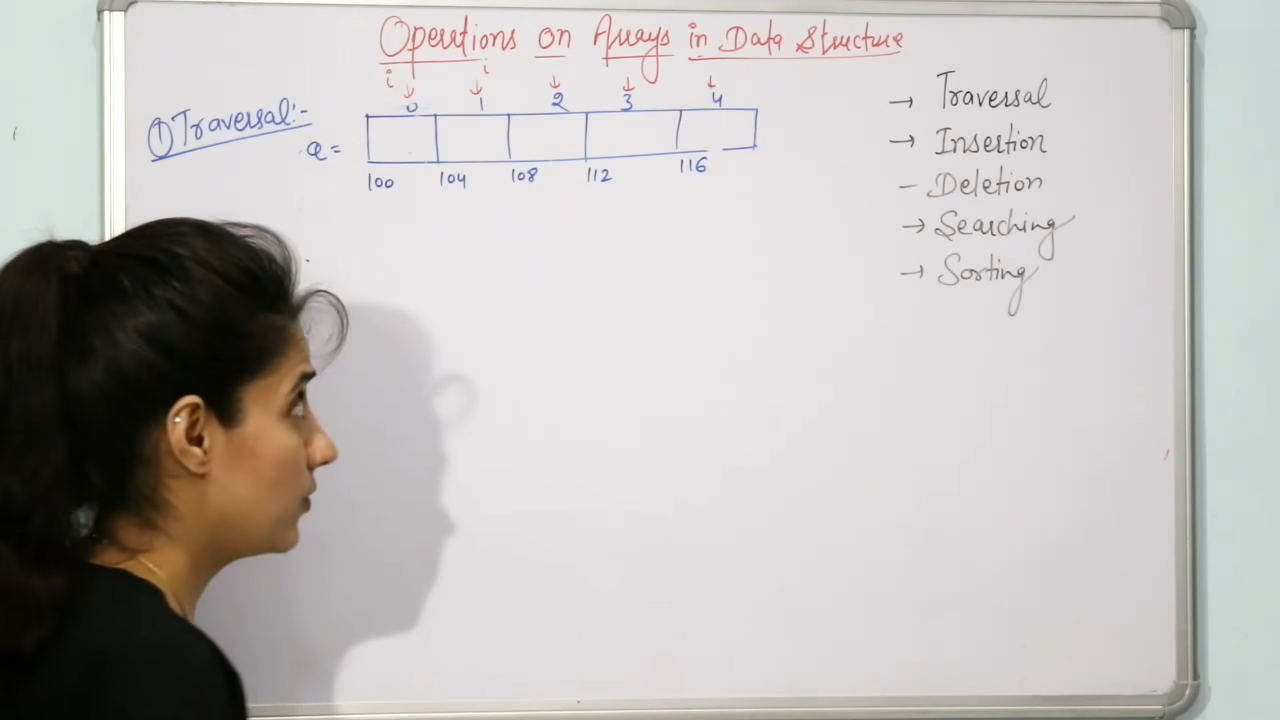 Operations on Arrays in Data Structure
i i
0 1 2 3 4
① Traversal:-
a =
100 104 108 112 116
→ Traversal
→ Insertion
- Deletion
→ Searching
→ Sorting